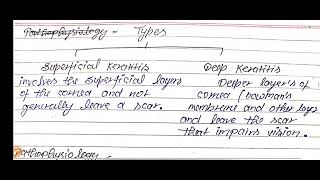 Pathophysiology - Types
Superficial Keratitis
involves the superficial layers
of the cornea and not
generally leave a scar.
Deep Keratitis
Deeper layer's of
cornea (bowman's
membrane and other layer
and leave the scar
that impairs vision.
Pathophysiology -